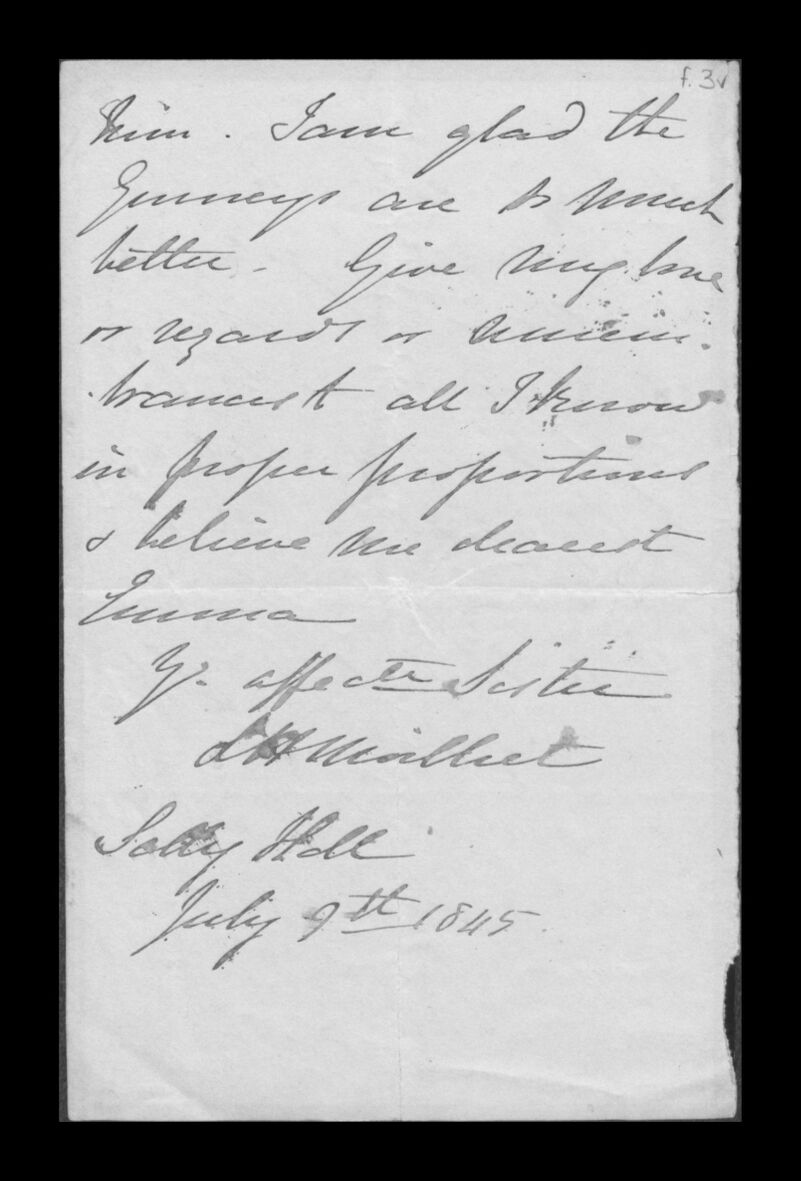 f. 3v
him. I am glad the
Gurneys are so much
better. Give my love
or regards or remem-
brances to all I know
in proper proportions
& believe me dearest
Emma
Yr. affecte Sister
L H Moilliet
Hall
July 9th 1845.